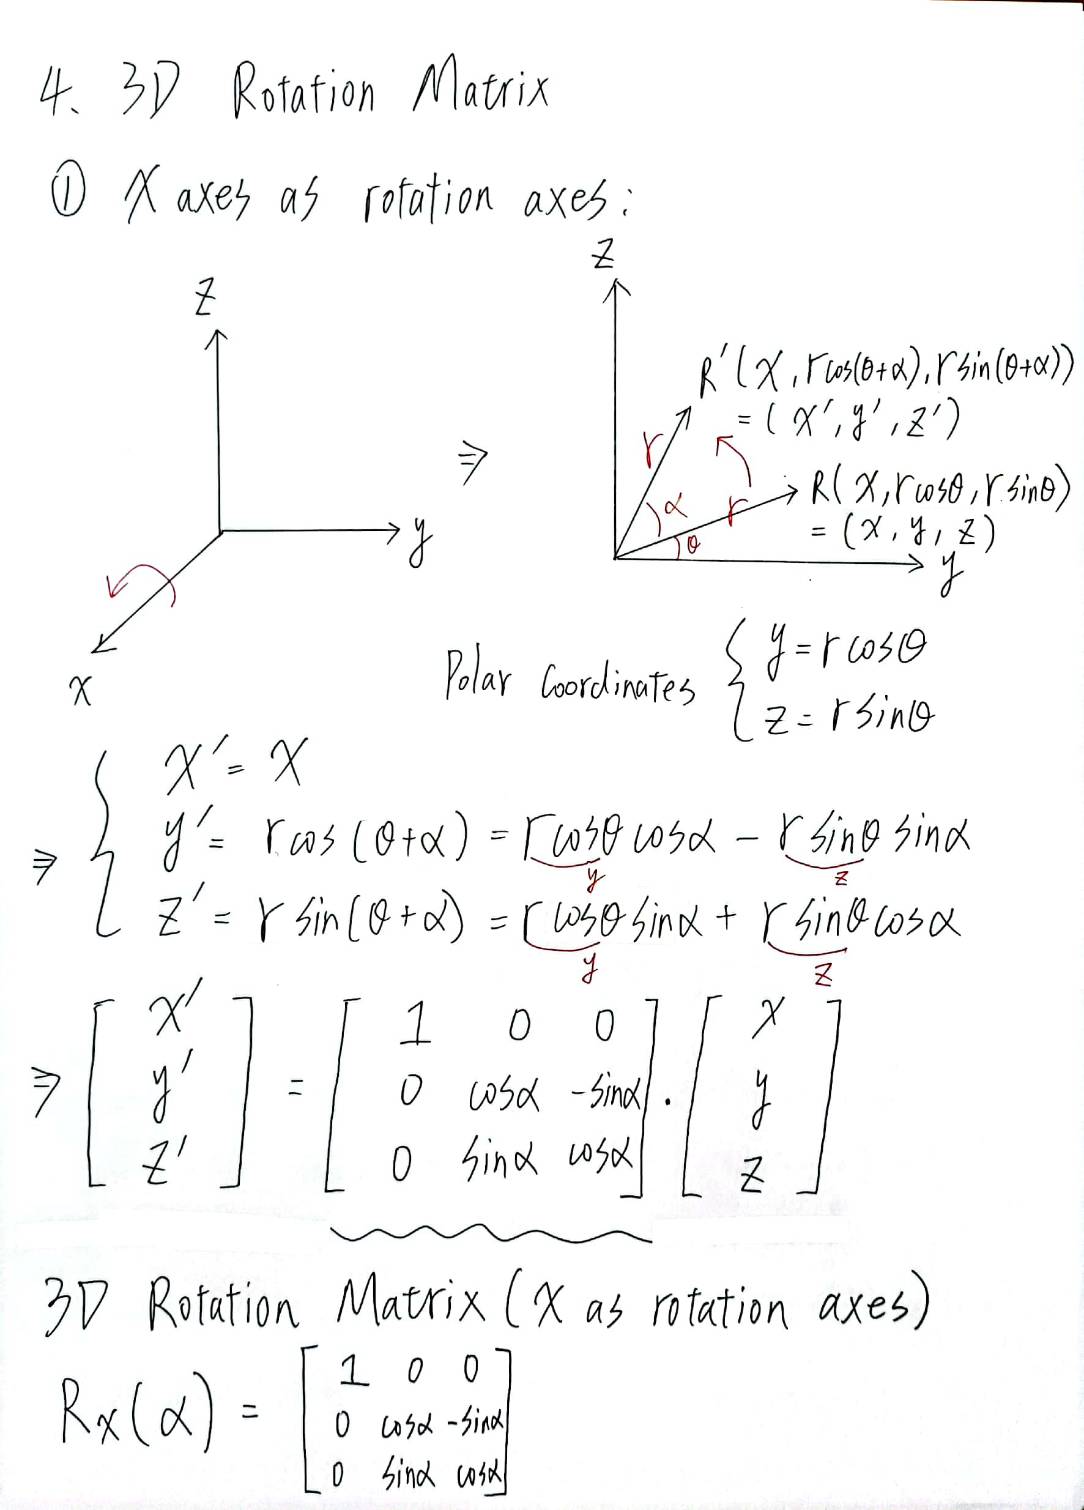 4. 3D Rotation Matrix
① X axes as rotation axes:
z
y
x
⇒
z
R'(x, rcos(θ+α), rsin(θ+α))
= (x', y', z')
r
α
r
θ
R(x, rcosθ, rsinθ)
= (x, y, z)
y
Polar Coordinates { y = r cosθ
z = r sinθ
⇒ { x' = x
y' = r cos(θ+α) = r cosθ cosα - r sinθ sinα
y z
z' = r sin(θ+α) = r cosθ sinα + r sinθ cosα
y z
⇒ [x' y' z'] = [1 0 0
0 cosα -sinα
0 sinα cosα] · [x y z]
3D Rotation Matrix (X as rotation axes)
Rx(α) = [1 0 0
0 cosα -sinα
0 sinα cosα]